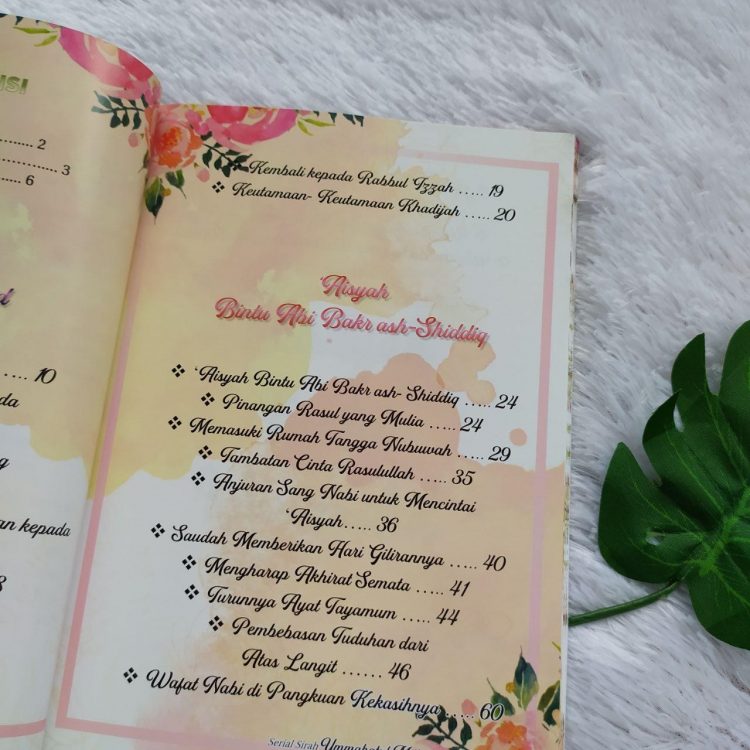 ISI
...... 2
...... 3
...... 6
.... 10
da
g
an kepada
❖ Kembali kepada Rabbul Izzah ..... 19
❖ Keutamaan- Keutamaan Khadijah ..... 20
'Aisyah
Bintu Abi Bakr ash-Shiddiq
❖ 'Aisyah Bintu Abi Bakr ash- Shiddiq ..... 24
❖ Pinangan Rasul yang Mulia ..... 24
❖ Memasuki Rumah Tangga Nubuwah ..... 29
❖ Tambatan Cinta Rasulullah ..... 35
❖ Anjuran Sang Nabi untuk Mencintai
'Aisyah..... 36
❖ Saudah Memberikan Hari Gilirannya ..... 40
❖ Mengharap Akhirat Semata ..... 41
❖ Turunnya Ayat Tayamum ..... 44
❖ Pembebasan Tuduhan dari
Atas Langit ...... 46
❖ Wafat Nabi di Pangkuan Kekasihnya ..... 60
Serial Sirah